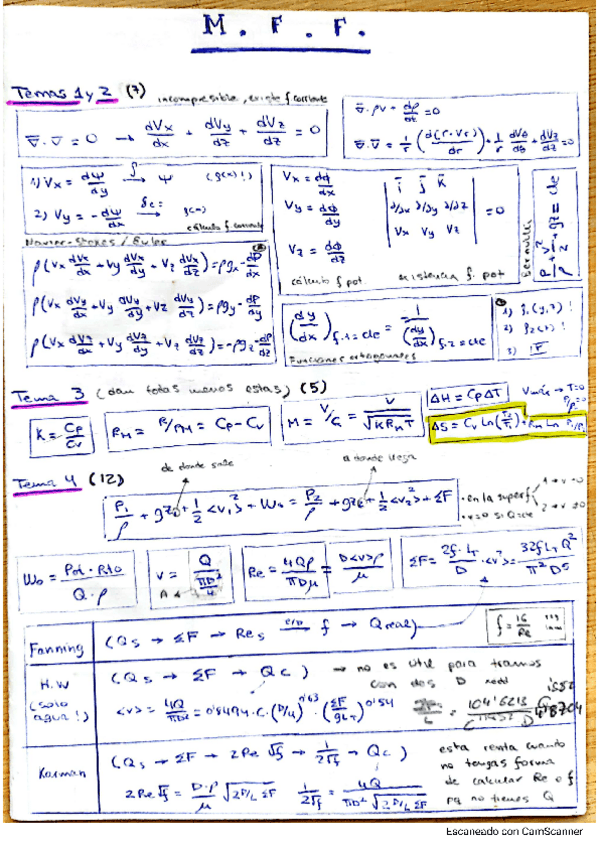 M. F. F.
Temas 1 y 2 (7)
incompresible, existe f corriente
∇̄·V̄ = 0 → dVx/dx + dVy/dy + dVz/dz = 0
∇̄·ρV̄ = dρ/dt = 0
∇̄·V̄ = 1/r (d(r·Vr)/dr) + 1/r dVθ/dθ + dVz/dz = 0
1) Vx = dΨ/dy ∫→ Ψ (g(x)!)
2) Vy = -dΨ/dx → g(x)
cálculo f. corriente
Vx = dΦ/dx
Vy = dΦ/dy
Vz = dΦ/dz
cálculo f pot
| ī j̄ k̄ |
| ∂/∂x ∂/∂y ∂/∂z | = 0
| Vx Vy Vz |
existencia f. pot
Bernoulli
P/ρ + V²/2 + gz = cte
Navier-Stokes / Euler
ρ(Vx dVx/dx + Vy dVx/dy + Vz dVx/dz) = ρgx - dP/dx
ρ(Vx dVy/dx + Vy dVy/dy + Vz dVy/dz) = ρgy - dP/dy
ρ(Vx dVz/dx + Vy dVz/dy + Vz dVz/dz) = -ρgz - dP/dz
(dy/dx) f.1 = cte = 1/(dy/dx) f.2 = cte
Funciones ortogonales
1) f₁(y,z)!
2) f₂(z)!
3)
Tema 3 (dan todas menos estas) (5)
K = Cp/Cv
RM = R/PM = Cp - Cv
M = V/C = V/√(K RM T)
ΔH = Cp ΔT
Vmáx → T=0
ΔS = Cv Ln(T₂/T₁) + RM Ln
Tema 4 (12)
de donde sale
a donde llega
P₁/ρ + gz₁ + 1/2 <v₁>² + W₀ = P₂/ρ + gz₂ + 1/2 <v₂>² + ΣF
· en la superf
· v=0 si Q=cte
W₀ = Pot · Rto / Q · ρ
v = Q / (πD²/4)
Re = 4Qρ/πDμ = D<v>ρ/μ
ΣF = 2f·LT/D · <v>² = 32 f LT Q²/π² D⁵
Fanning
(Qs → ΣF → Res → f → Qreal)
f = 16/Re
H.W
(solo agua!)
(Qs → ΣF → Qc) → no es útil para tramos
con dos D
<v> = 4Q/πD² = 0'8494 · C · (D/4)^0'63 · (ΣF/gLT)^0'54
Karman
(Qs → ΣF → 2Re√f → 1/√f → Qc)
2Re√f = D·ρ/μ √(2D/L ΣF)
1/√f = 4Q / πD² √(2D/L ΣF)
esta renta cuando
no tengas forma
de calcular Re o f
pq no tienes Q
Escaneado con CamScanner